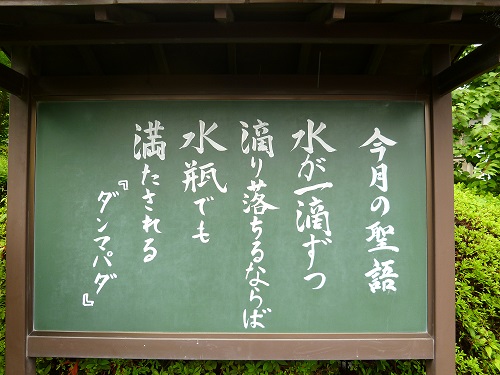 今月の聖語
水が一滴ずつ
滴り落ちるならば
水瓶でも
満たされる
『ダンマパダ』